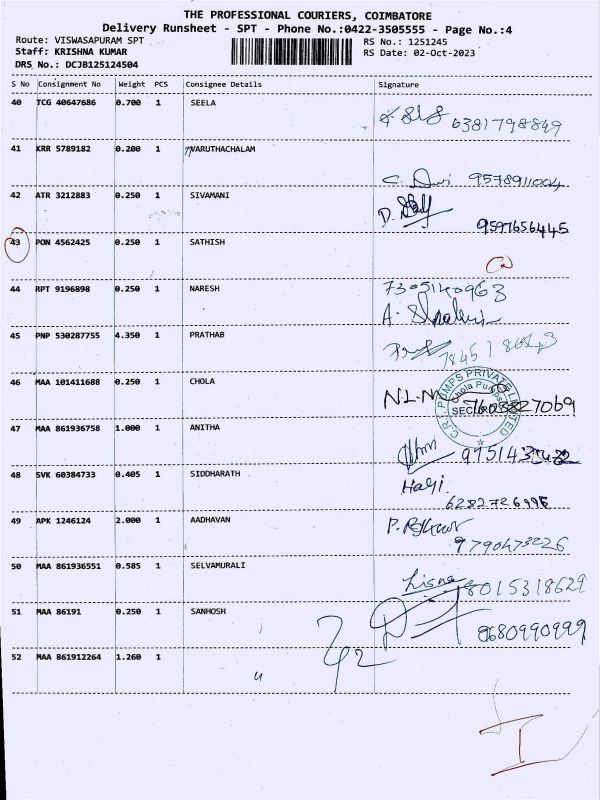 THE PROFESSIONAL COURIERS, COIMBATORE
Delivery Runsheet - SPT - Phone No.:0422-3505555 - Page No.:4
Route: VISWASAPURAM SPT
RS No.: 1251245
Staff: KRISHNA KUMAR
RS Date: 02-Oct-2023
DRS No.: DCJB125124504
S No Consignment No Weight PCS Consignee Details Signature
40 TCG 40647686 0.700 1 SEELA
6381798849
41 KRR 5789182 0.200 1 VARUTHACHALAM
C. Devi 9578911004
42 ATR 3212883 0.250 1 SIVAMANI
9597656445
43 PON 4562425 0.250 1 SATHISH
44 RPT 9196898 0.250 1 NARESH
7305140963
45 PNP 530287755 4.350 1 PRATHAB
46 MAA 101411688 0.250 1 CHOLA
N.L.N 7603827069
C.R.I. PUMPS PRIVATE LIMITED
Chola Pumps
47 MAA 861936758 1.000 1 ANITHA
48 SVK 60384733 0.405 1 SIDDHARATH
Hari.
49 APK 1246124 2.000 1 AADHAVAN
9790473226
50 MAA 861936551 0.585 1 SELVAMURALI
8015318629
51 MAA 86191 0.250 1 SANHOSH
9680990999
52 MAA 861912264 1.260 1